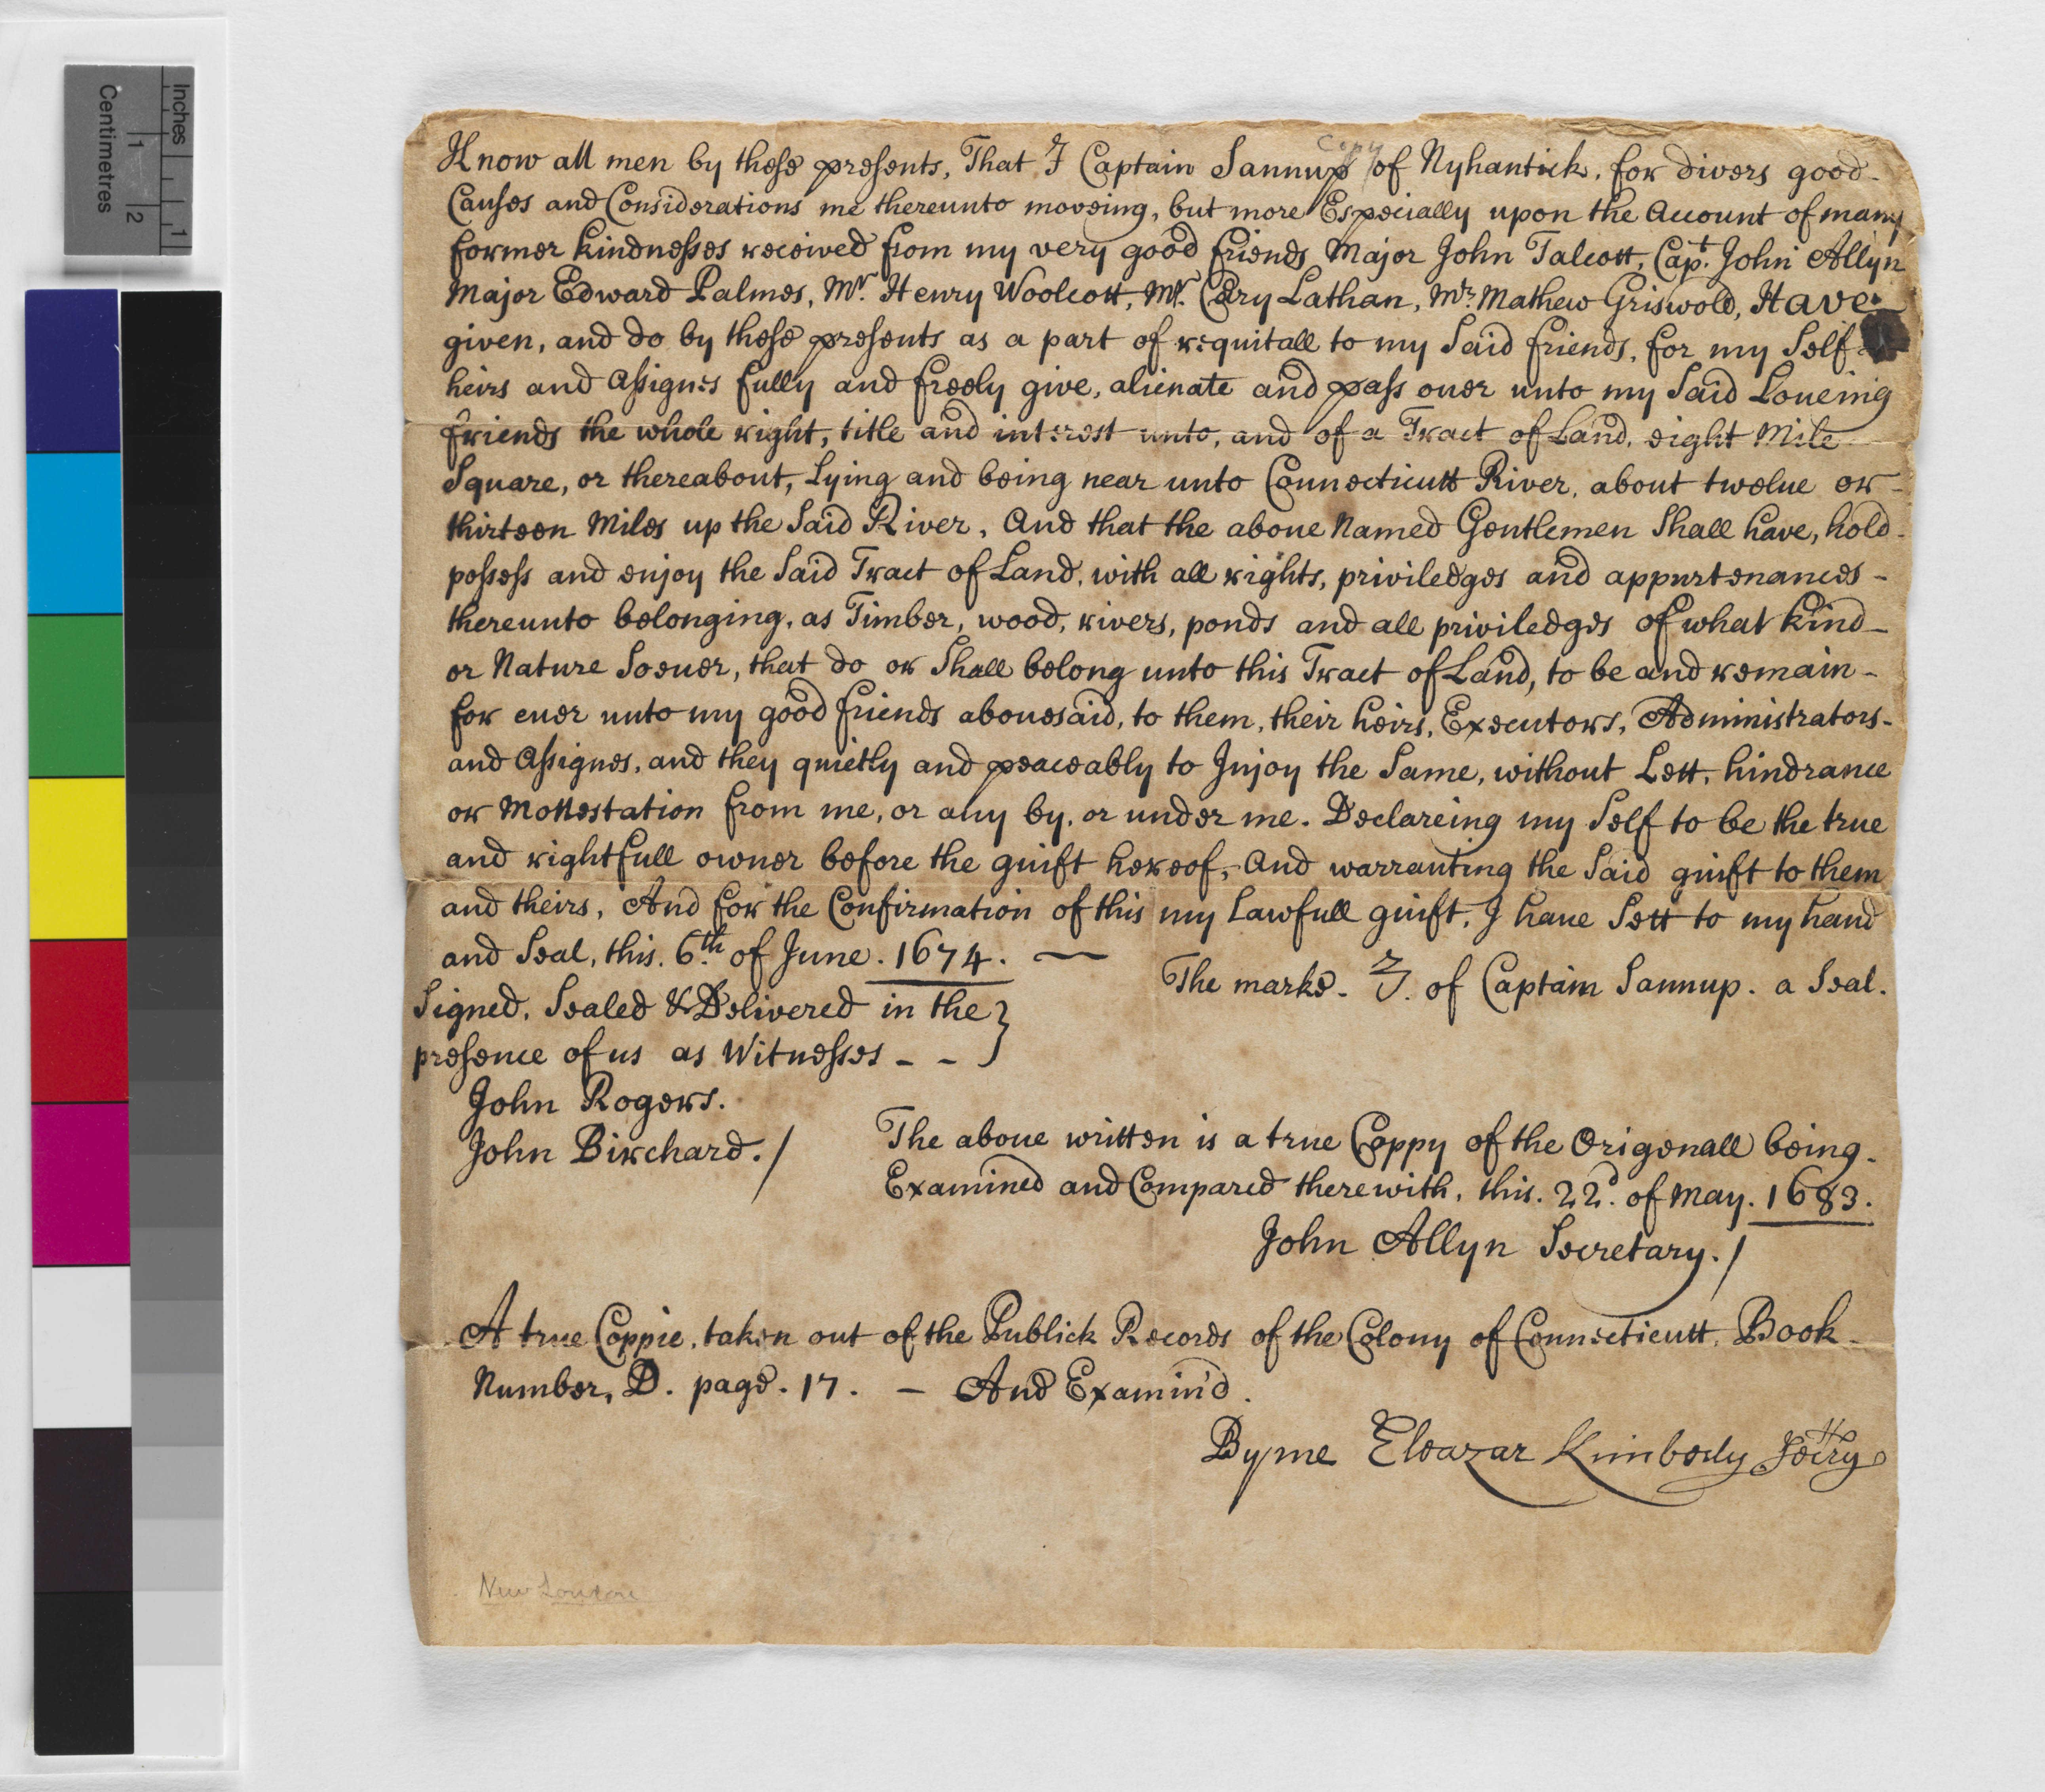 Inches
Centimetres
1
2
1
Copy
Know all men by these presents, That I Captain Sannup of Nyhantick, for divers good-
Causes and Considerations me thereunto moveing, but more Especially upon the Account of many
former kindnesses received from my very good friends Major John Talcott, Capt. John Allyn
Major Edward Palmes, Mr. Henry Woolcott, Mr. Cary Lathan, Mr. Mathew Griswold, Have
given, and do by these presents as a part of requitall to my Said friends, for my Self
heirs and Assignes fully and freely give, alienate and pass over unto my Said Loueing
friends the whole right, title and interest unto, and of a Tract of Land, eight Mile
Square, or thereabout, Lying and being near unto Connecticutt River, about twelue or-
thirteen Miles up the Said River, And that the aboue Named Gentlemen Shall have, hold-
possess and enjoy the Said Tract of Land, with all rights, priviledges and appurtenances-
thereunto belonging, as Timber, wood, rivers, ponds and all priviledges of what kind-
or Nature Soeuer, that do or Shall belong unto this Tract of Land, to be and remain-
for euer unto my good friends abouesaid, to them, their heirs, Executors, Administrators-
and Assignes, and they quietly and peaceably to Injoy the Same, without Lett, hindrance
or Mollestation from me, or any by, or under me. Declareing my Self to be the true
and rightfull owner before the guift hereof, And warranting the Said guift to them
and theirs, And for the Confirmation of this my Lawfull guift, I haue Sett to my hand
and Seal, this. 6th. of June. 1674. —
The marke. of Captain Sannup. a Seal.
Signed, Sealed & Delivered in the }
presence of us as Witnesses - -
John Rogers.
John Birchard./
The aboue written is a true Coppy of the Origenall being-
Examined and Compared therewith, this. 22d. of May. 1683.
John Allyn Secretary./
A true Coppie, taken out of the Publick Records of the Colony of Connecticutt, Book-
Number, D. page. 17. — And Examin'd.
Byme Eleazar Kimberly Secry
New London